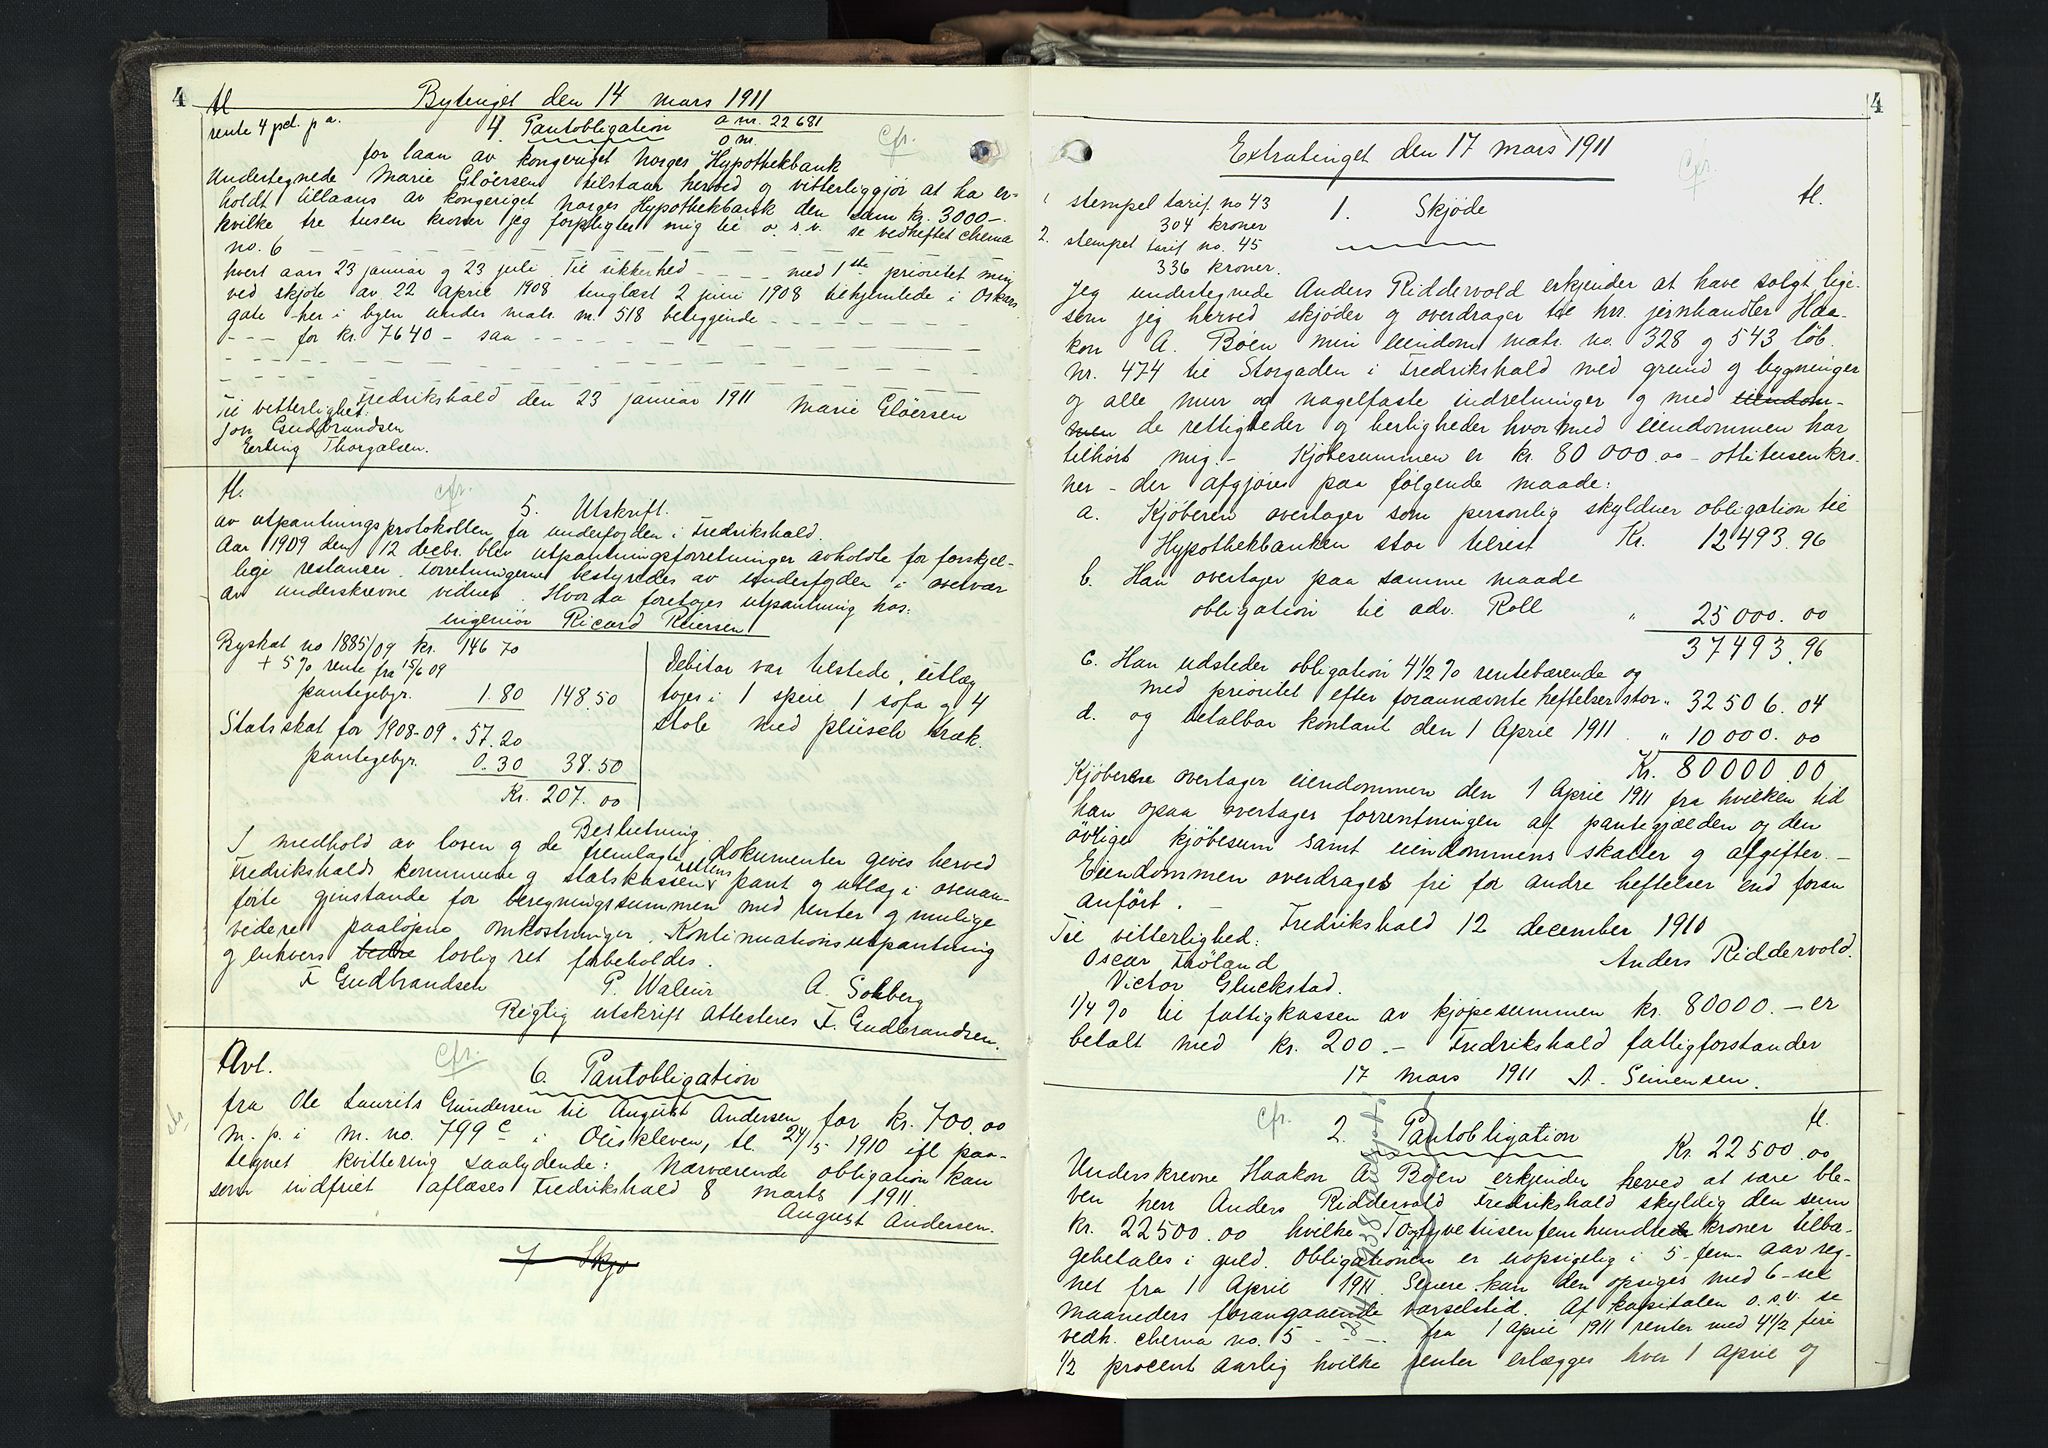 4
tl
Bytinget den 14 mars 1911
rente 4 pct. p a.
4. Pantobligation
a nr. 22681
o nr.
cfr.
for laan av kongeriget Norges Hypothekbank
Undertegnede Marie Gløersen tilstaar herved og vitterliggjør at ha er-
holdt tillaans av kongeriget Norges Hypothekbank den sum kr. 3000-.
hvilke tre tusen kroner jeg forpligter mig til o. s. v. se vedheftet chema
no. 6
hvert aars 23 januar og 23 juli. Til sikkerhed - - - - med 1ste prioritet min
ved skjøte av 22 april 1908 tinglæst 2 juni 1908 tilhjemlede i Oskars
gate her i byen under matr. nr. 518 beliggende - - -
- - - for kr. 7640 - saa - - -
Fredrikshald den 23 januar 1911 Marie Gløersen
Til vitterlighet:
Jon Gudbrandsen
Erling Thorgalsen.
tl.
cfr.
5. Utskrift.
av utpantningsprotokollen for underfogden i Fredrikshald.
Aar 1909 den 12 decbr. blev utpantningsforretninger avholdte for forskjel-
lige restancer. Forretningerne bestyredes av underfogden i overvær
av underskrevne vidner. Hvorda foretages utpantning hos:
ingeniør Ricard Riiersen
Byskat no 1885/09 kr. 146 70
+ 5% rente fra 15/6 09
pantegebyr. 1.80 148.50
Statsskat for 1908-09 " 57.20
pantegebyr. 0.30 38.50
Kr. 207.00
Debitor var tilstede, utlæg
toges i 1 speil 1 sofa og 4
stole med plüsch træk.
Beslutning.
I medhold av loven og de fremlagte dokumenter gives herved
Fredrikshalds kommune og statskassen rettens pant og utlæg i ovenan-
førte gjenstande for beregningssummen med renter og mulige
videre paaløpne omkostninger. Kontinuationsutpantning
og enhver bedre lovlig ret forbeholdes.
F Gudbrandsen P. Waleur A. Solberg
Rigtig utskrift attesteres F. Gudbrandsen.
Avl.
cfr.
6. Pantobligation
fra Ole Laurits Gundersen til August Andersen for kr. 700.00
m. p. i m. no. 799 c i Oliskleven, tl. 24/5 1910 ifl paa-
tegnet kvittering saalydende: Nærværende obligation kan
som indfriet aflæses Fredrikshald 8 marts 1911.
August Andersen.
7 Skjø
4
Extratinget den 17 mars 1911
cfr.
tl.
1. stempel tarif. no 43
304 kroner
2. stempel tarif no. 45
336 kroner.
1. Skjøde
Jeg undertegnede Anders Riddervold erkjender at have solgt lige-
som jeg herved skjøder og overdrager til hrr. jernhandler Haa-
kon A. Boen min eiendom matr. no. 328 og 543 løb.
nr. 474 til Storgaden i Fredrikshald med grund og bygninger
og alle mur og nagelfaste indretninger og med eiendom-
men de rettigheder og herligheder hvormed eiendommen har
tilhørt mig. - Kjøbesummen er kr. 80 000.00 - ottitusenkro-
ner - der afgjøres paa følgende maade:
a. Kjøberen overtager som personlig skyldner obligation til
Hypothekbanken stor tilrest Kr. 12493.96
b. Han overtager paa samme maade
obligation til adv. Roll " 25 000.00
37493.96
c. Han udsteder obligation 4 1/2 % rentebærende og
med prioritet efter forannævnte heftelser stor " 32 506.04
d. og betalbar kontant den 1 April 1911. " 10 000.00
Kr. 80000.00
Kjøberne overtager eiendommen den 1 April 1911 fra hvilken tid
han ogsaa overtager forrentningen af pantegjælden og den
øvrige kjøbesum samt eiendommens skatter og afgifter. -
Eiendommen overdrages fri for andre heftelser end foran
anført. -
Fredrikshald 12 december 1910
Til vitterlighed:
Anders Riddervold.
Oscar Frøland
Victor Gluckstad.
1/4 % til fattigkassen av kjøpesummen kr. 80000. - er
betalt med kr. 200. - Fredrikshald fattigforstander
17 mars 1911 A. Simensen.
cfr.
tl.
2. Pantobligation
Kr. 22500.00
Underskrevne Haakon A Boen erkjender herved at være ble-
ven herr Anders Riddervold Fredrikshald skyldig den sum
kr. 22500.00 hvilke Toogtyvetusenfemhundrede kroner tilba-
gebetales i guld. Obligationen er uopsigelig i 5-fem-aar reg-
net fra 1 April 1911. Senere kan den opsiges med 6-sex
maaneders forangaaende varselstid. Af kapitalen o.s.v. se
vedh. chema no. 5 - - - fra 1 April 1911 renter med 4 1/2 fire
1/2 procent aarlig hvilke renter erlægges hver 1 April og